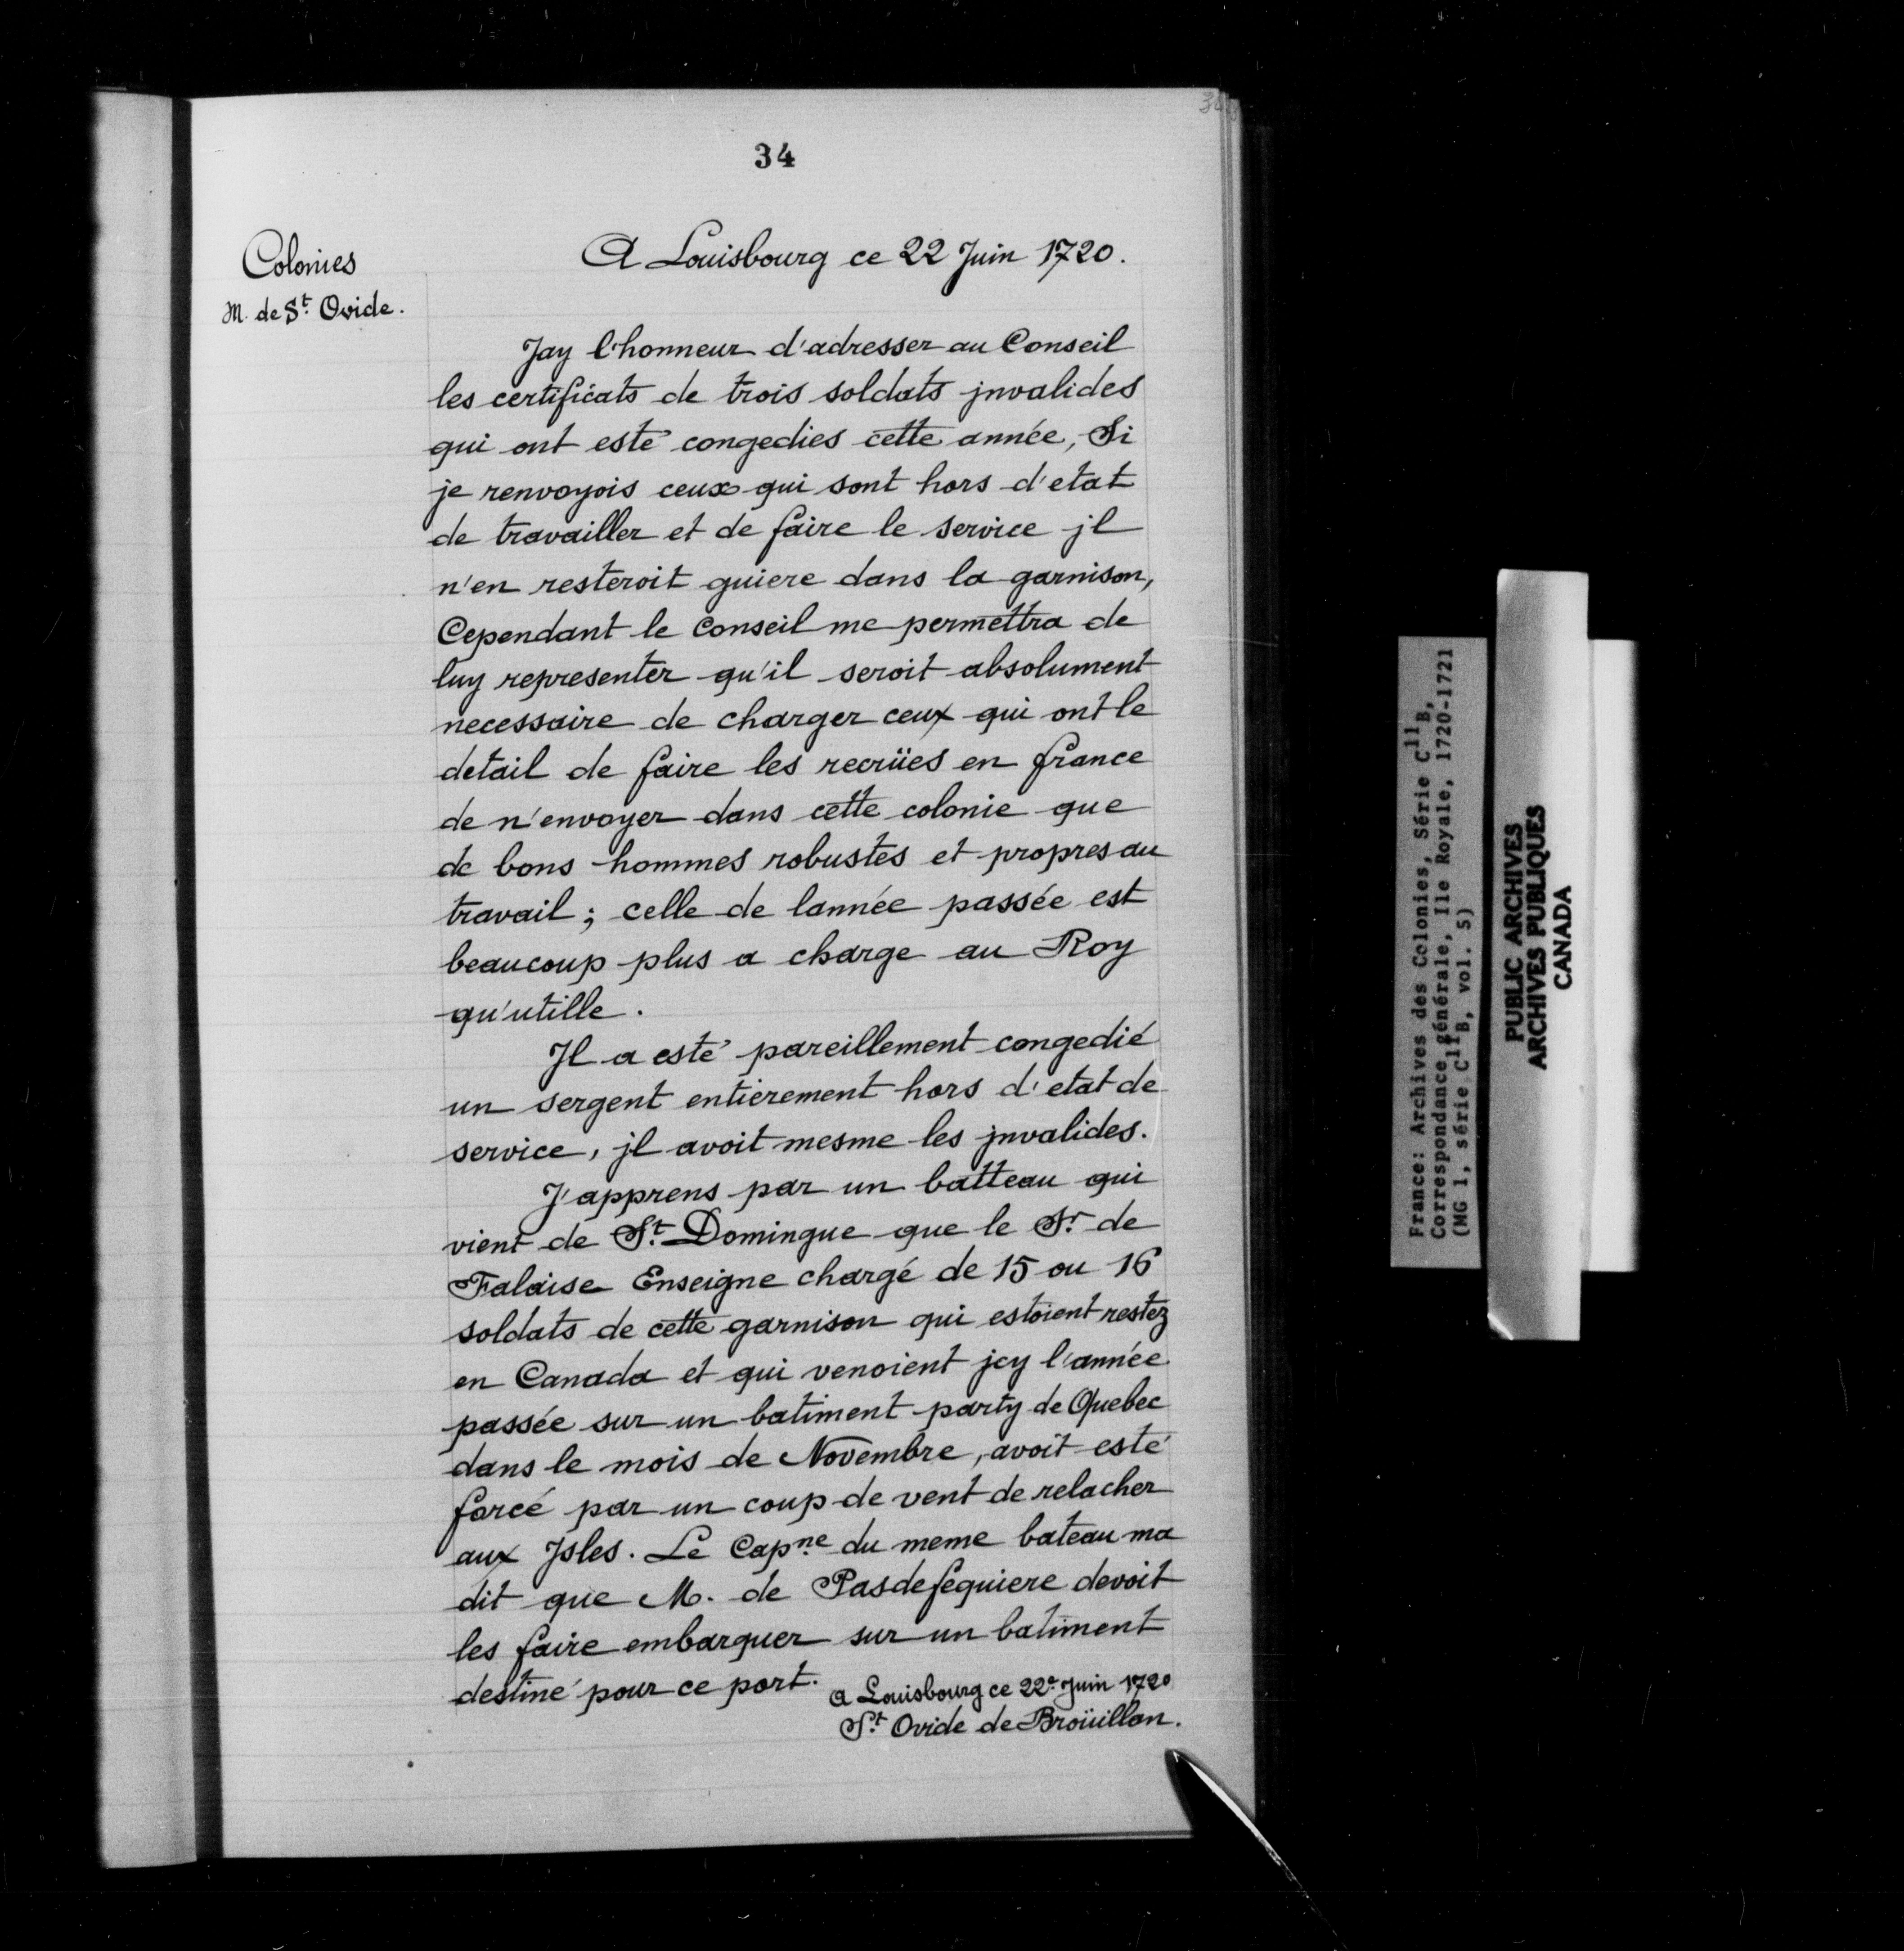 34
Colonies
M. de St. Ovide.
A Louisbourg ce 22 Juin 1720.
Jay l'honneur d'adresser au Conseil
les certificats de trois soldats jnvalides
qui ont esté congedies cette année, Si
je renvoyois ceux qui sont hors d'etat
de travailler et de faire le service jl
n'en resteroit guiere dans la garnison,
Cependant le Conseil me permettra de
luy representer qu'il seroit absolument
necessaire de charger ceux qui ont le
detail de faire les recrües en france
de n'envoyer dans cette colonie que
de bons hommes robustes et propres au
travail; celle de lannée passée est
beaucoup plus a charge au Roy
qu'utille.
Jl a esté pareillement congedié
un sergent entierement hors d'etat de
service, jl avoit mesme les jnvalides.
J'apprens par un batteau qui
vient de St. Domingue que le Sr. de
Falaise Enseigne chargé de 15 ou 16
soldats de cette garnison qui estoient restez
en Canada et qui venoient jcy l'année
passée sur un batiment party de Quebec
dans le mois de Novembre, avoit esté
forcé par un coup de vent de relacher
aux Jsles. Le Capne. du meme bateau ma
dit que M. de Pasdefequiere devoit
les faire embarquer sur un batiment
destiné pour ce port.
a Louisbourg ce 22e. Juin 1720
St. Ovide de Broüillan.
France: Archives des Colonies, Série C11B,
Correspondance générale, Ile Royale, 1720-1721
(MG 1, série C11B, vol. 5)
PUBLIC ARCHIVES
ARCHIVES PUBLIQUES
CANADA